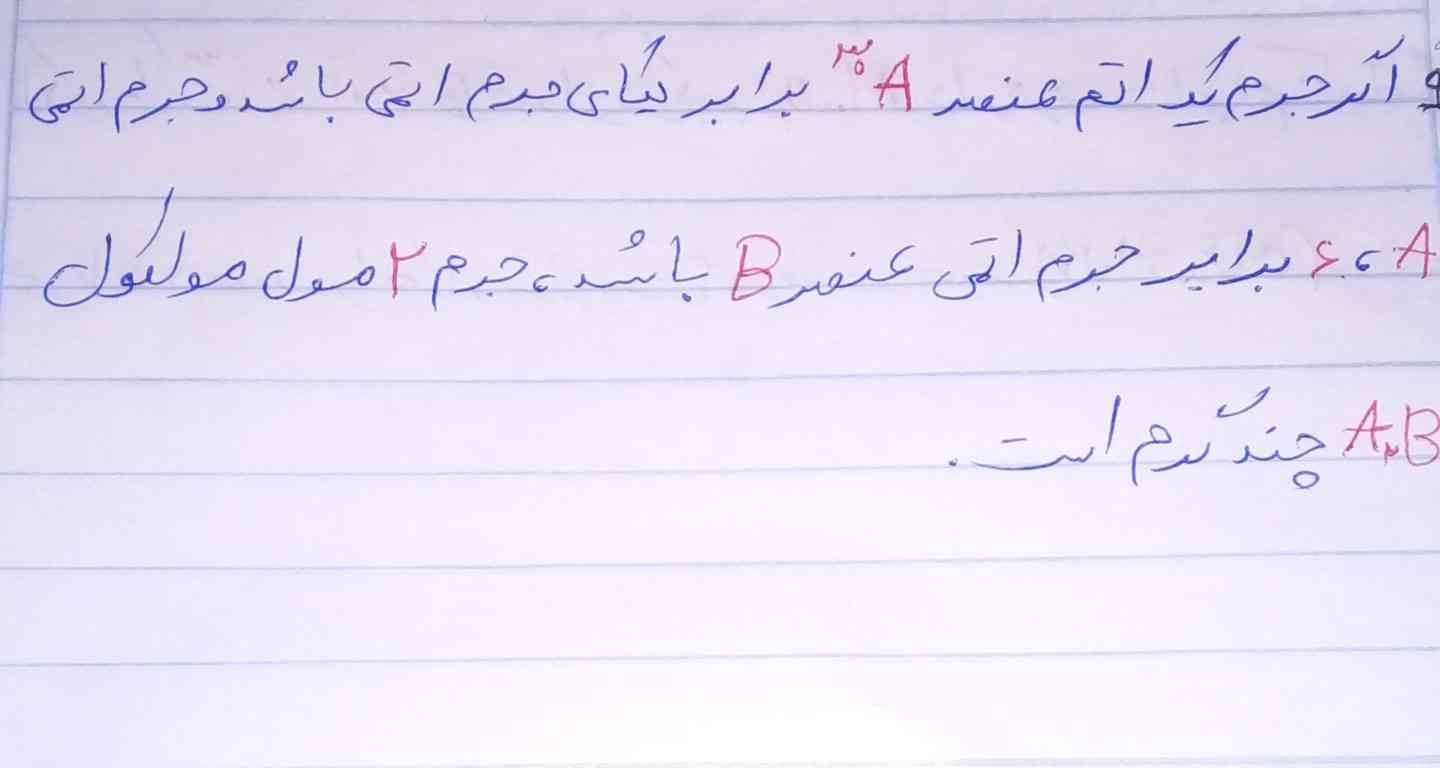 و اگر جرم یک اتم عنصر A ۳۰ برابر یکای جرم اتمی باشد و جرم اتمی
A، ۶ برابر جرم اتمی عنصر B باشد، جرم ۲ مول مولکول
A₂B چند گرم است.